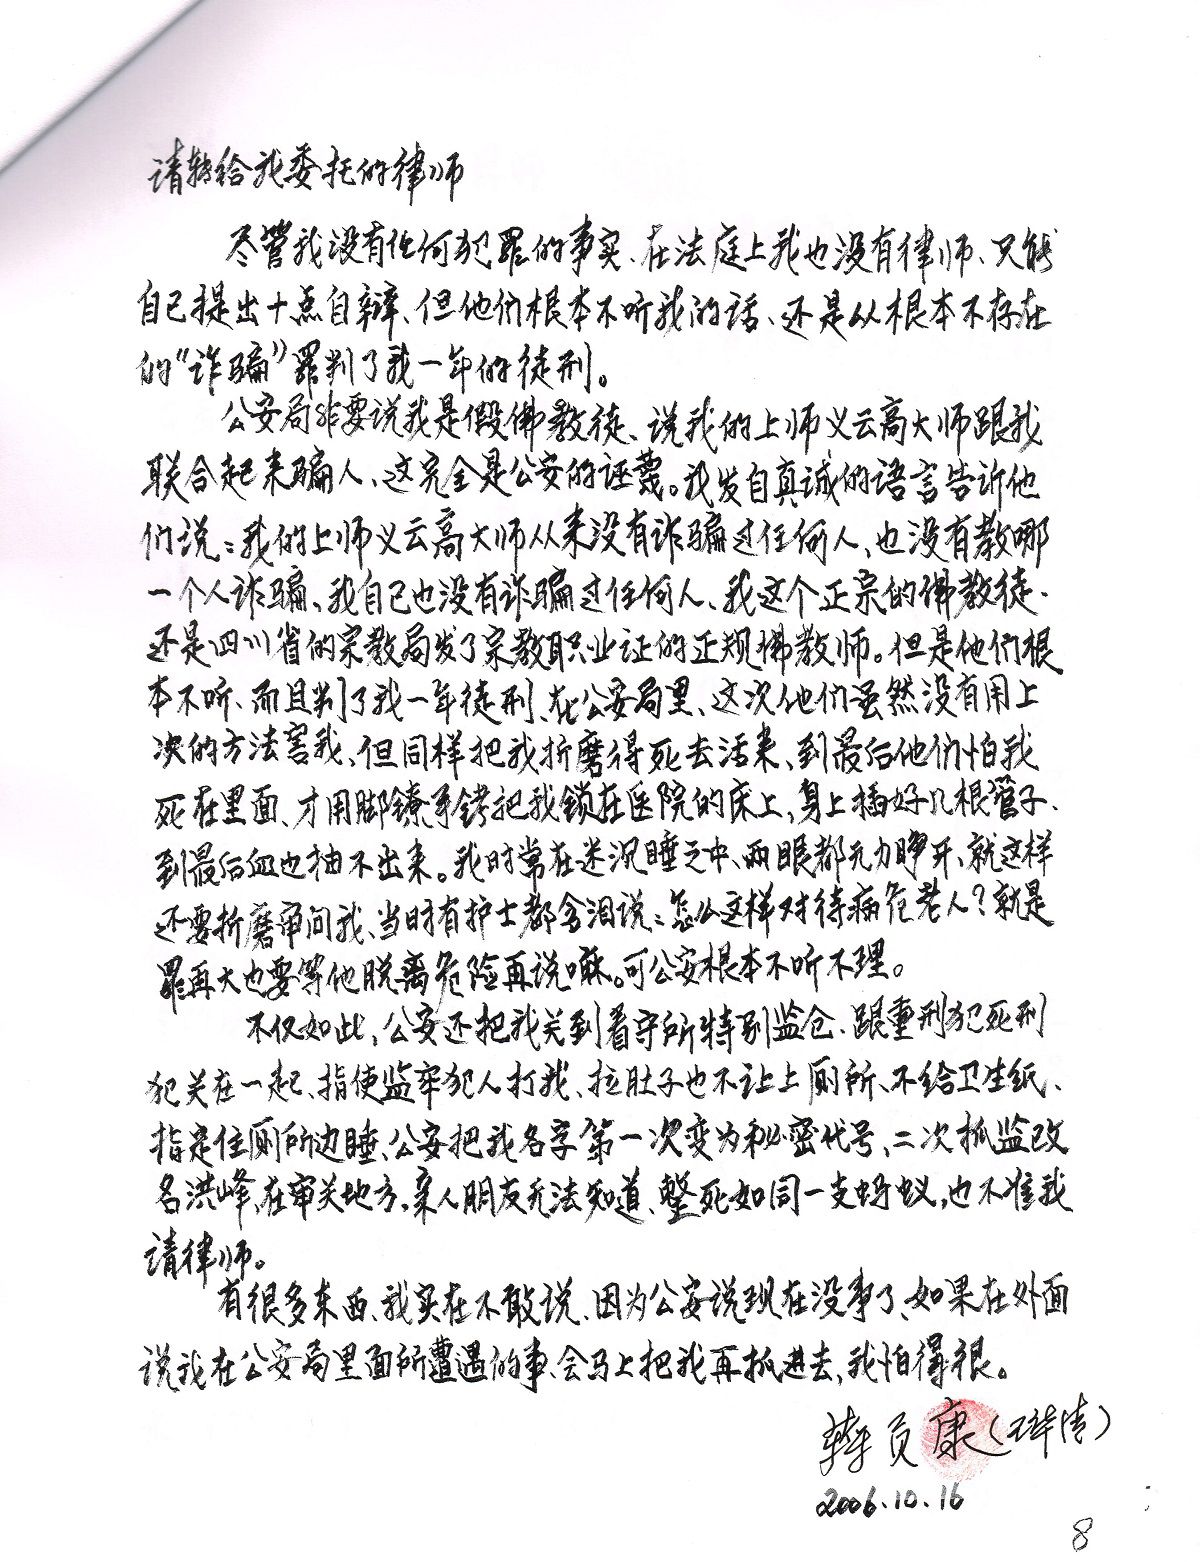 请转给我委托的律师
尽管我没有任何犯罪的事实、在法庭上我也没有律师、只能
自己提出十点自辩、但他们根本不听我的话、还是从根本不存在
的“诈骗”罪判了我一年的徒刑。
公安局非要说我是假佛教徒、说我的上师义云高大师跟我
联合起来骗人、这完全是公安的诬蔑。我发自真诚的语言告诉他
们说：我的上师义云高大师从来没有诈骗过任何人、也没有教哪
一个人诈骗、我自己也没有诈骗过任何人、我这个正宗的佛教徒、
还是四川省的宗教局发了宗教职业证的正规佛教师。但是他们根
本不听、而且判了我一年徒刑、在公安局里、这次他们虽然没有用上
次的方法害我、但同样把我折磨得死去活来、到最后他们怕我
死在里面、才用脚镣手铐把我锁在医院的床上，身上插好几根管子、
到最后血也抽不出来。我时常在迷沉睡之中、两眼都无力睁开、就这样
还要折磨审问我、当时有护士都含泪说：怎么这样对待病危老人？就是
罪再大也要等他脱离危险再说嘛。可公安根本不听不理。
不仅如此，公安还把我关到看守所特别监仓、跟重刑犯死刑
犯关在一起、指使监牢犯人打我、拉肚子也不让上厕所、不给卫生纸、
指定住厕所边睡、公安把我名字第一次变为秘密代号、二次抓监改
名洪峰、在审关地方，亲人朋友无法知道、整死如同一支蚂蚁，也不准我
请律师。
有很多东西、我实在不敢说、因为公安说现在没事了、如果在外面
说我在公安局里面所遭遇的事、会马上把我再抓进去，我怕得很。
贡康(清)
2006.10.16
8